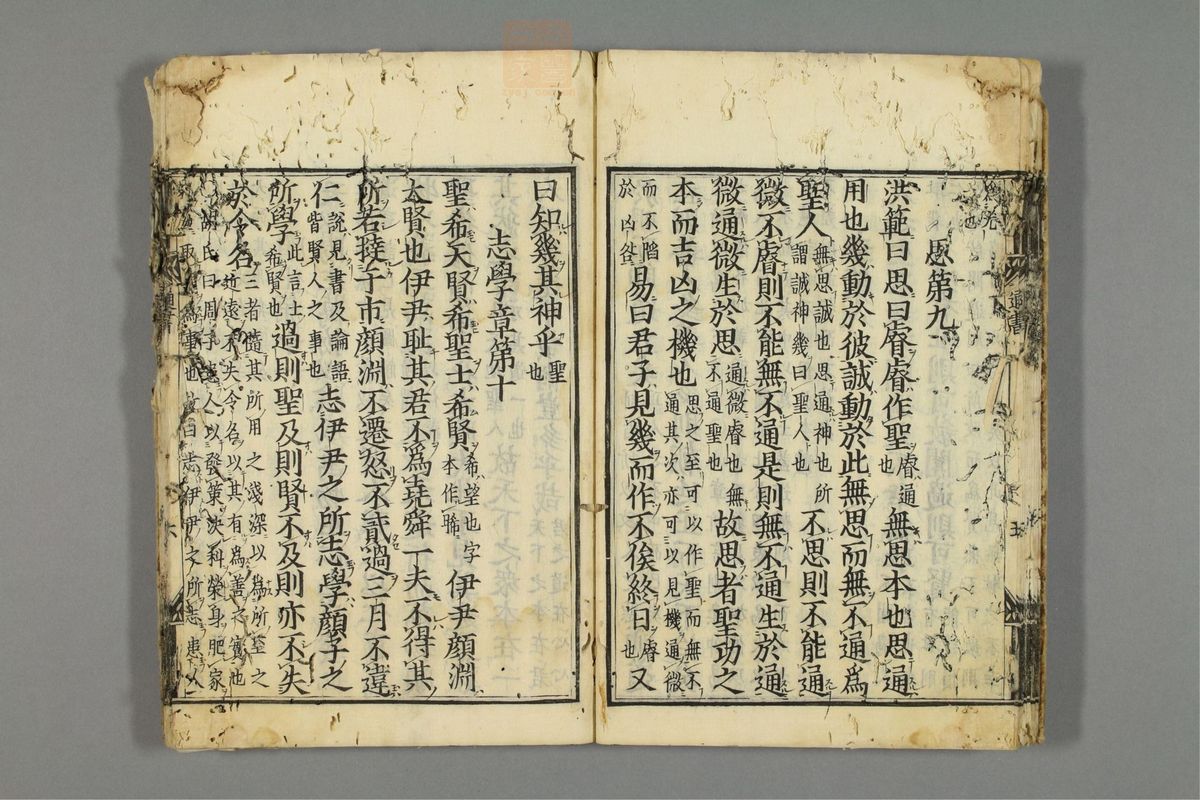 思第九
洪範曰思曰睿睿作聖睿通也無思本也思通
用也幾動於彼誠動於此無思而無不通爲
聖人無思誠也思通神也所謂誠神幾曰聖人也不思則不能通
微不睿則不能無不通是則無不通生於通
微通微生於思通微睿也無不通聖也故思者聖功之
本而吉凶之機也思之至可以作聖而無不通其次亦可以見機通微
而不陷於凶咎易曰君子見幾而作不俟終日睿也又
曰知幾其神乎聖也
志學章第十
聖希天賢希聖士希賢希望也字本作睎伊尹顔淵
大賢也伊尹耻其君不爲堯舜一夫不得其
所若撻于市顔淵不遷怒不貳過三月不違
仁說見書及論語皆賢人之事也志伊尹之所志學顔子之
所學此言士希賢也過則聖及則賢不及則亦不失
於令名三者隨其所用之淺深以爲所至之近遠不失令名以其有爲善之實也
胡氏曰周子患人以發策决科榮身肥家
爲事也故曰志伊尹之所志患人
通書